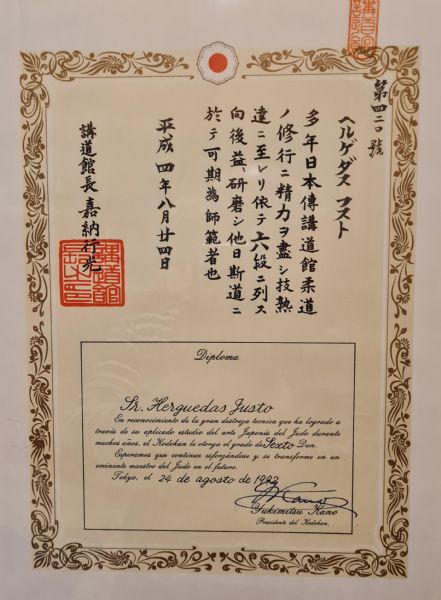 第四二〇號
ヘルゲダス フスト
多年日本傳講道館柔道
ノ修行ニ精力ヲ盡シ技熟
達ニ至レリ依テ六段ニ列ス
向後益〻研磨シ他日斯道ニ
於テ可期為師範者也
平成四年八月廿四日
講道館長 嘉納行光
Diploma
Sr. Herguedas Justo
En reconocimiento de la gran destreza tecnica que ha logrado a
través de su aplicado estudio del arte Japonés del Judo durante
muchos años, el Kodokan le otorga el grado de Sexto Dan.
Esperamos que continue esforzándose y se transforme en un
eminente maestro del Judo en el futuro.
Tokyo, el 24 de agosto de 1992
Yukimitsu Kano
Presidente del Kodokan.